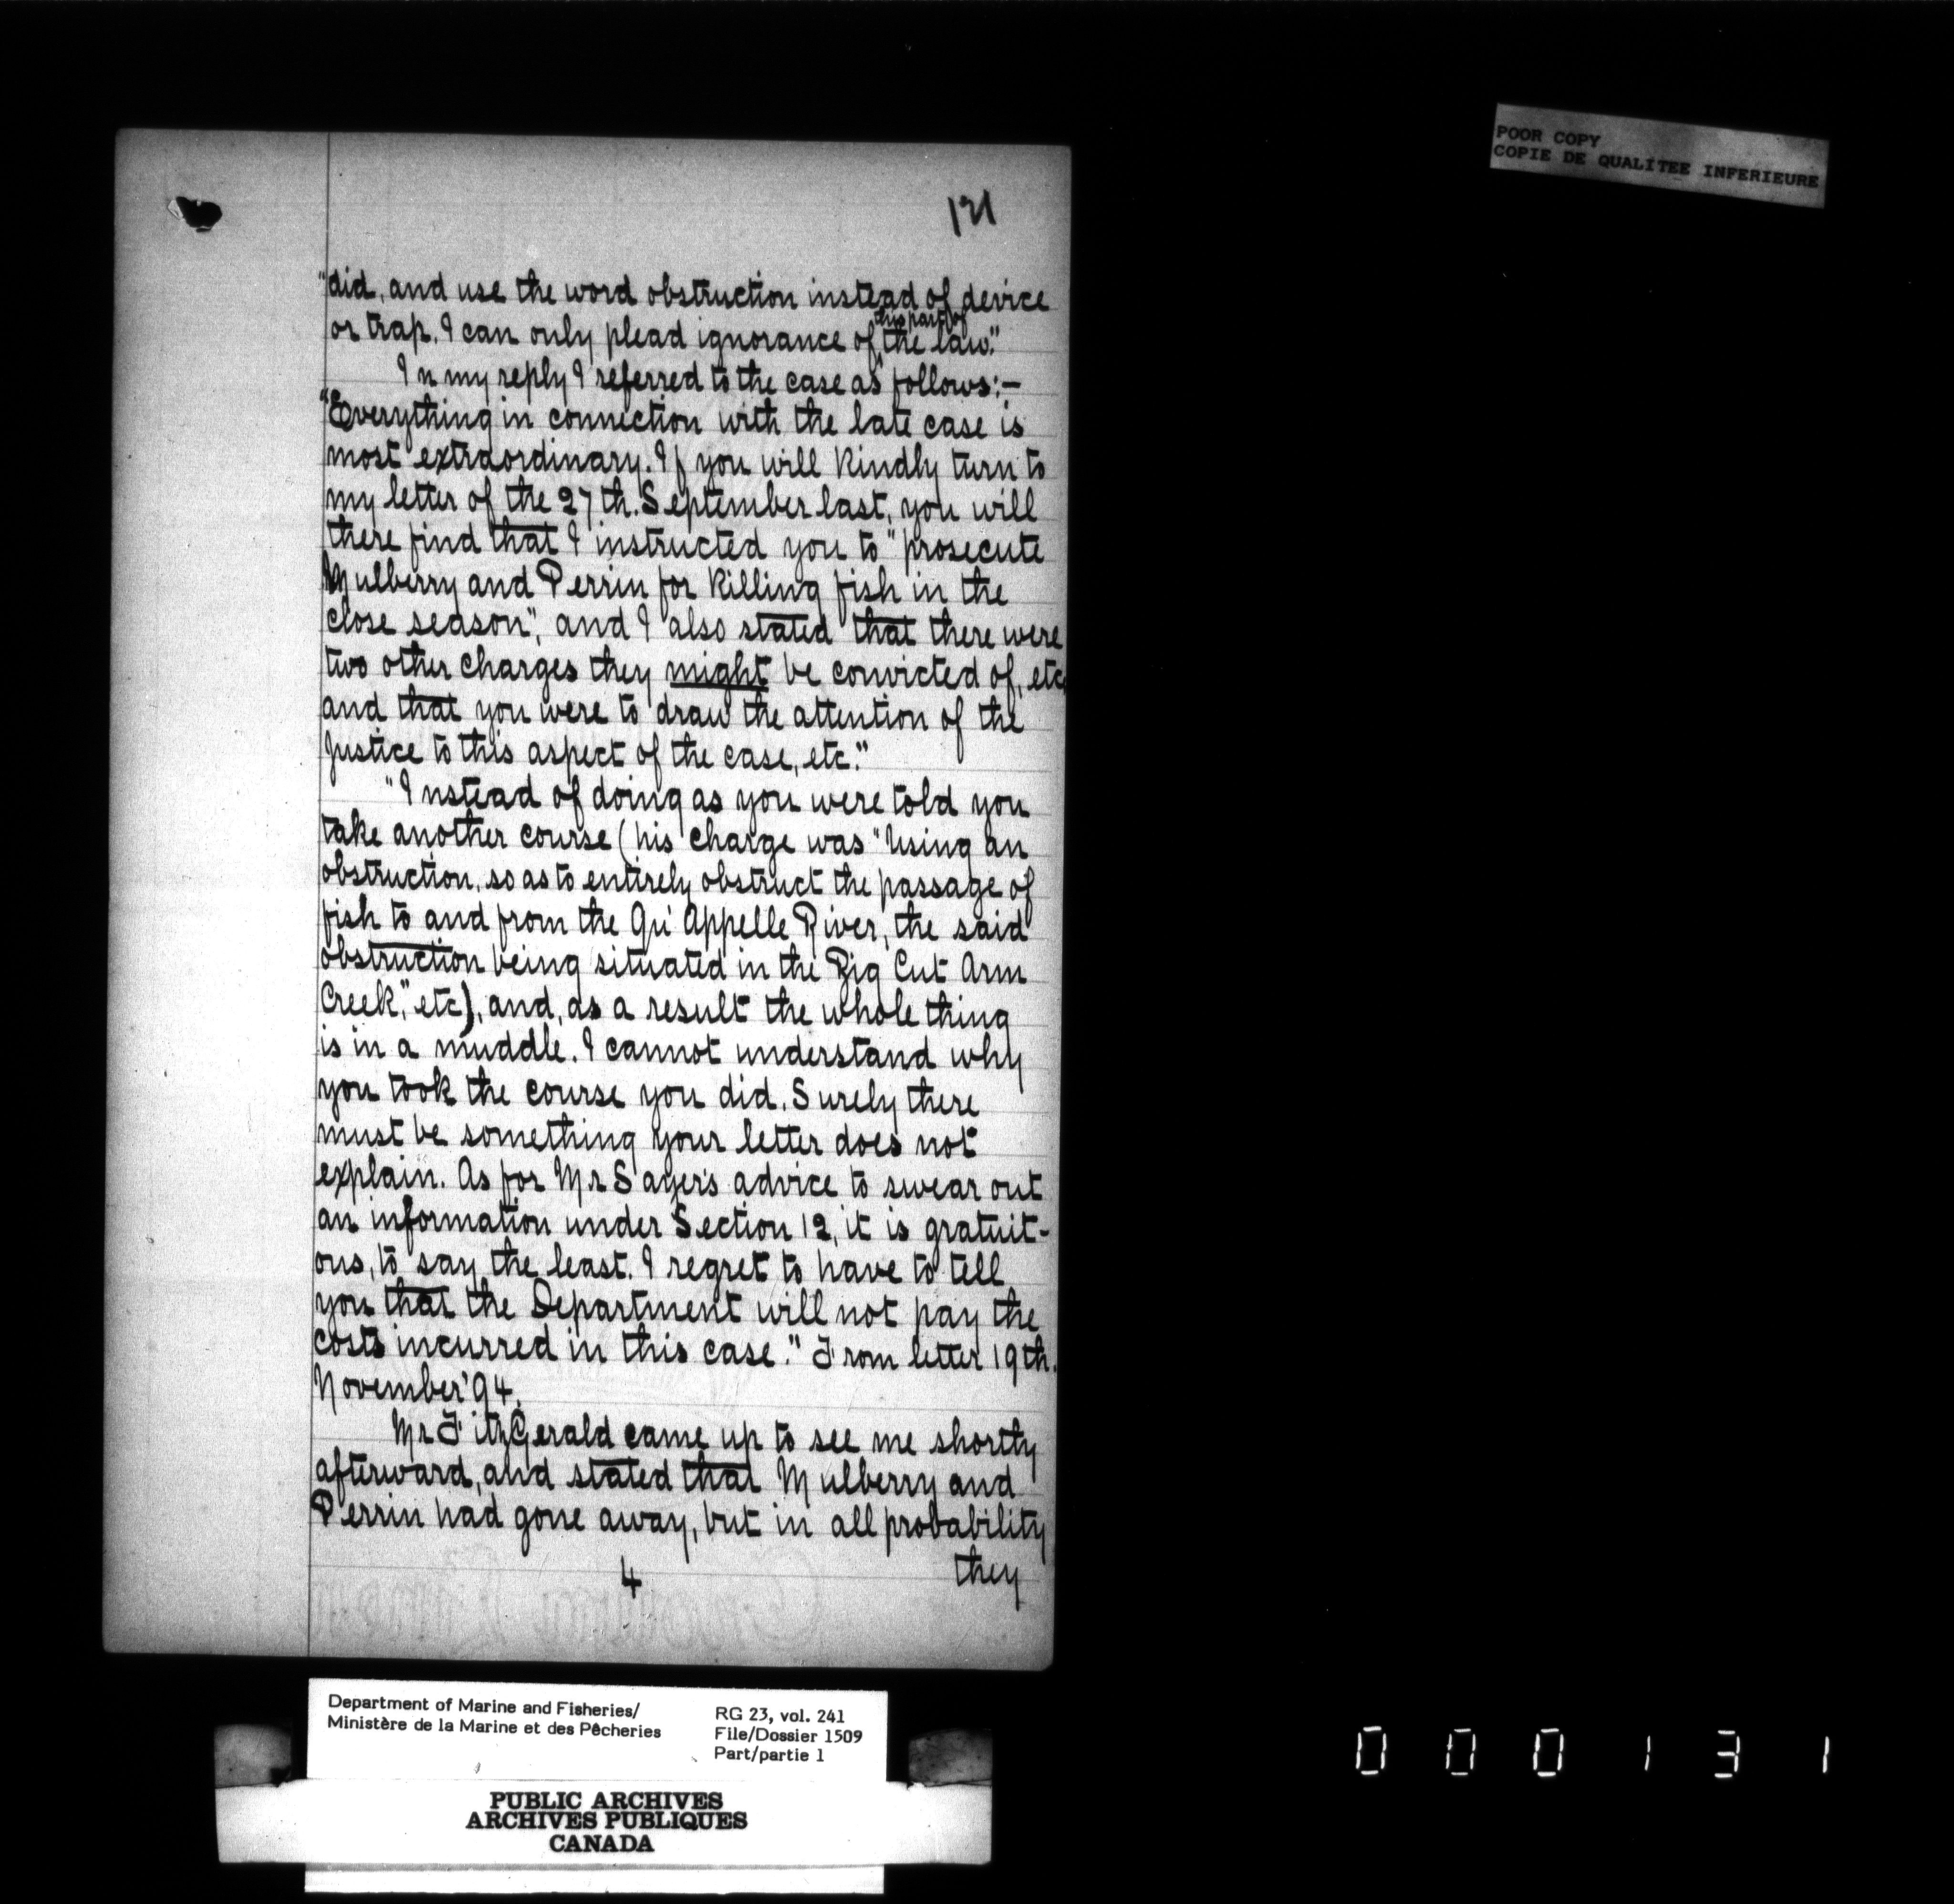 POOR COPY
COPIE DE QUALITEE INFERIEURE
121
"did, and use the word obstruction instead of device
this part of
or trap. I can only plead ignorance of the law."
In my reply I referred to the case as follows:—
"Everything in connection with the late case is
most extraordinary. If you will kindly turn to
my letter of the 27th. September last, you will
there find that I instructed you to "prosecute
Mulberry and Perrin for killing fish in the
close season", and I also stated that there were
two other charges they might be convicted of, etc.
and that you were to draw the attention of the
Justice to this aspect of the case, etc."
"Instead of doing as you were told you
take another course (his charge was "Using an
obstruction, so as to entirely obstruct the passage of
fish to and from the Qu'Appelle River, the said
obstruction being situated in the Big Cut Arm
Creek," etc), and, as a result the whole thing
is in a muddle. I cannot understand why
you took the course you did. Surely there
must be something your letter does not
explain. As for Mr Sayer's advice to swear out
an information under Section 12, it is gratuit-
ous, to say the least. I regret to have to tell
you that the Department will not pay the
costs incurred in this case." From letter 19th.
November '94.
Mr FitzGerald came up to see me shortly
afterward, and stated that Mulberry and
Perrin had gone away, but in all probability
they
4
Department of Marine and Fisheries/
Ministère de la Marine et des Pêcheries
RG 23, vol. 241
File/Dossier 1509
Part/partie 1
PUBLIC ARCHIVES
ARCHIVES PUBLIQUES
CANADA
000131